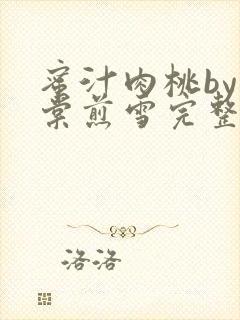 蜜汁肉桃by
棠煎雪完整
洛洛